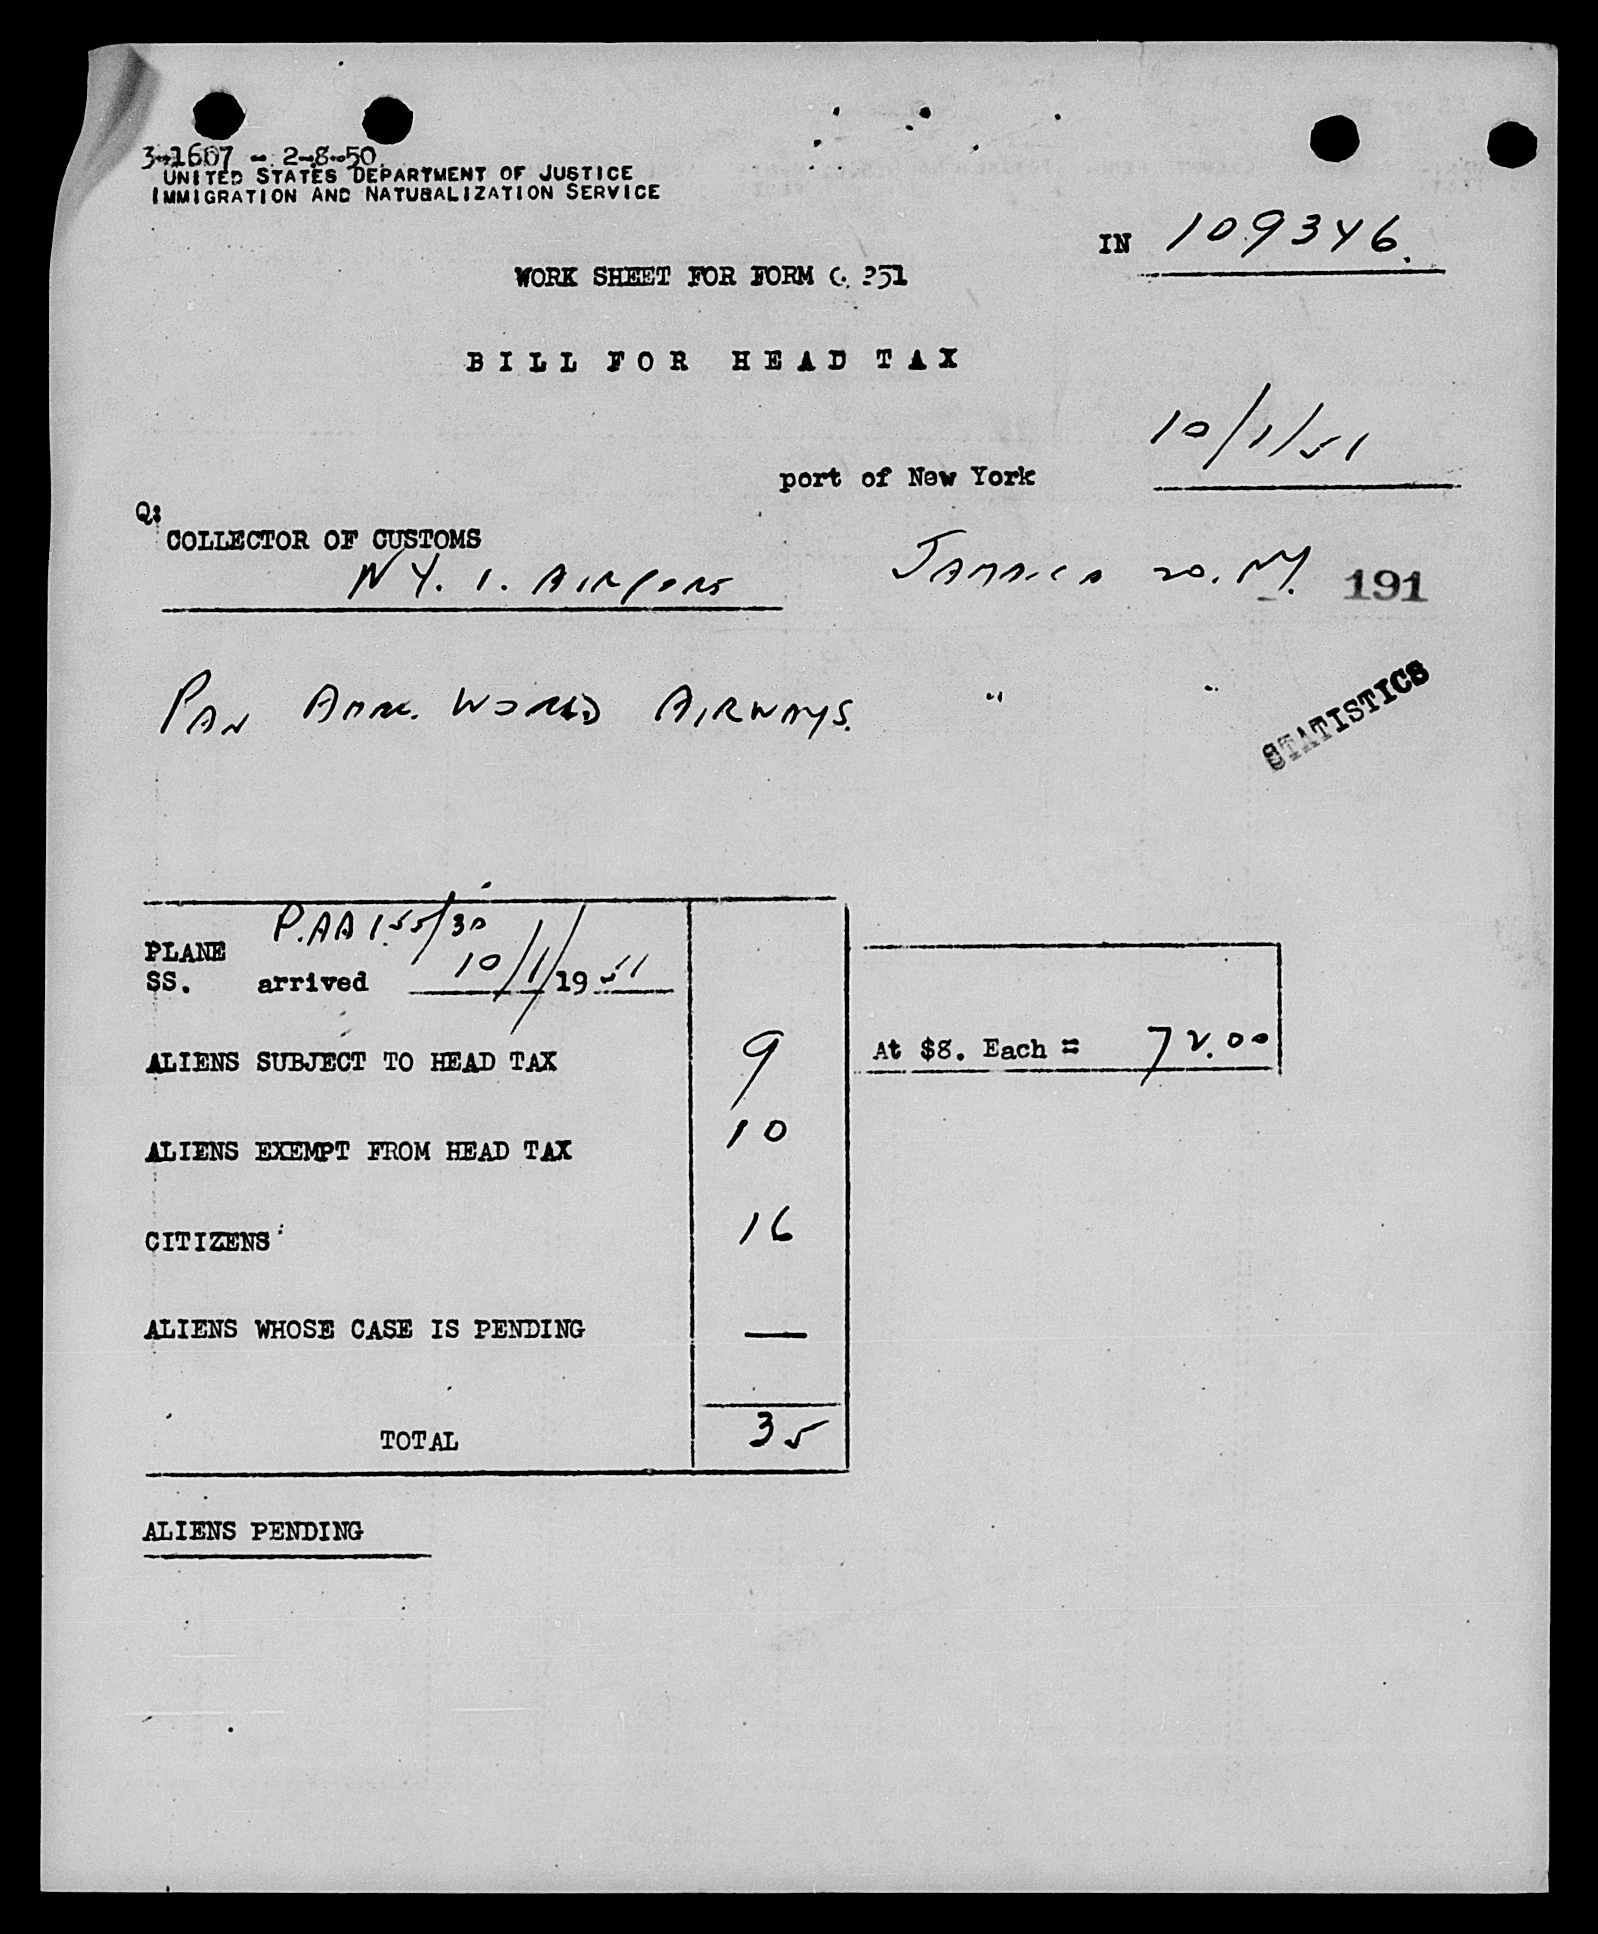 3-1607 - 2-8-50
UNITED STATES DEPARTMENT OF JUSTICE
IMMIGRATION AND NATURALIZATION SERVICE
IN 109346.
WORK SHEET FOR FORM 351
BILL FOR HEAD TAX
10/1/51
port of New York
Q:
COLLECTOR OF CUSTOMS
N.Y. I. AIRPORT JAMAICA 20. NY. 191
PAN AMER. WORLD AIRWAYS. " "
STATISTICS
P.AA 155/30
PLANE
SS. arrived 10/1/1951
ALIENS SUBJECT TO HEAD TAX 9 At $8. Each = 72.00
ALIENS EXEMPT FROM HEAD TAX 10
CITIZENS 16
ALIENS WHOSE CASE IS PENDING —
TOTAL 35
ALIENS PENDING